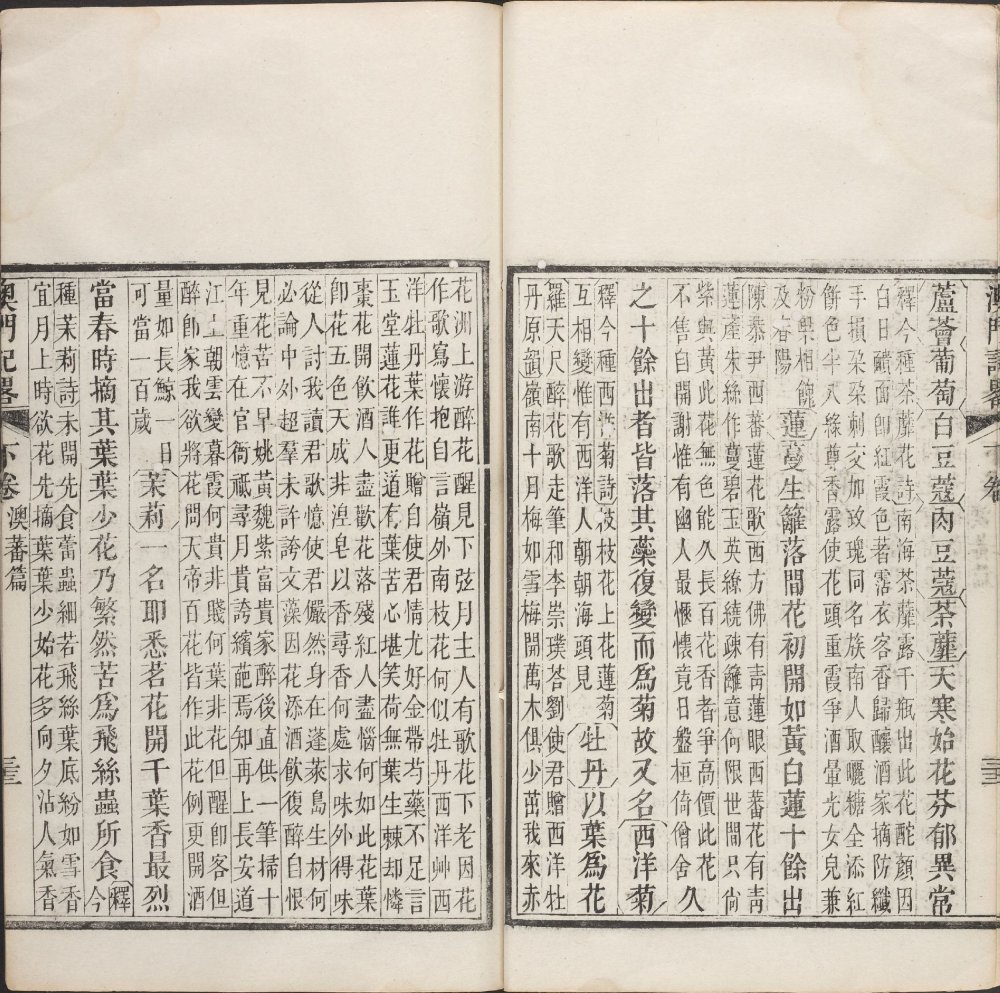 澳門記畧 下卷
三三
蘆薈葡萄白豆蔻肉豆蔻荼蘼天寒始花芬郁異常
釋今種茶蘼花詩南海茶蘼露千瓶出此花酡顏因
白日醺面卽紅霞色著霑衣客香歸釀酒家摘防纖
手損朶朶刺交加玫瑰同名族南人取曬糖全添紅
餅色半入綠尊香露使花頭重霞爭酒暈光女兒兼
粉與相餽
及春陽
蓮蔓生籬落間花初開如黃白蓮十餘出
陳恭尹西蕃蓮花歌西方佛有靑蓮眼西蕃花有靑
蓮產朱絲作蔓碧玉英繚繞疎籬意何限世間只尙
紫與黃此花無色能久長百花香者爭高價此花
不售自開謝惟有幽人最愜懷竟日盤桓倚僧舍
久
之十餘出者皆落其蘂復變而爲菊故又名西洋菊
釋今種西洋菊詩枝枝花上花蓮菊
互相變惟有西洋人朝朝海頭見
牡丹以葉爲花
羅天尺醉花歌走筆和李崇璞荅劉使君贈西洋牡
丹原韻嶺南十月梅如雪梅開萬木俱少茁我來赤
花洲上游醉花醒見下弦月主人有歌花下老因花
作歌寫懷抱自言嶺外南枝花何似牡丹西洋艸西
洋牡丹葉作花贈自使君情尤好金帶芍藥不足言
玉堂蓮花誰更道有葉苦心堪笑荷無葉生棘却憐
棗花開飲酒人盡歡花落殘紅人盡惱何如此花葉
卽花五色天成非湼皂以香尋香何處求味外得味
從人討我讀君歌憶使君儼然身在蓬萊島生材何
必論中外超羣未許誇文藻因花添酒飲復醉自恨
見花苦不早姚黃魏紫富貴家醉後直供一筆掃十
年重憶在官衙祗尋月貴誇繽葩焉知再上長安道
江上朝雲變暮霞何貴非賤何葉非花但醒卽客但
醉卽家我欲將花問天帝百花皆作此花例更開酒
量如長鯨一日
可當一百歲
茉莉一名耶悉茗花開千葉香最烈
當春時摘其葉葉少花乃繁然苦爲飛絲蟲所食
釋今
種茉莉詩未開先食蕾蟲細若飛絲葉底紛如雪香
宜月上時欲花先摘葉葉少始花多向夕沾人氣香
澳門記畧 下卷 澳蕃篇
三三